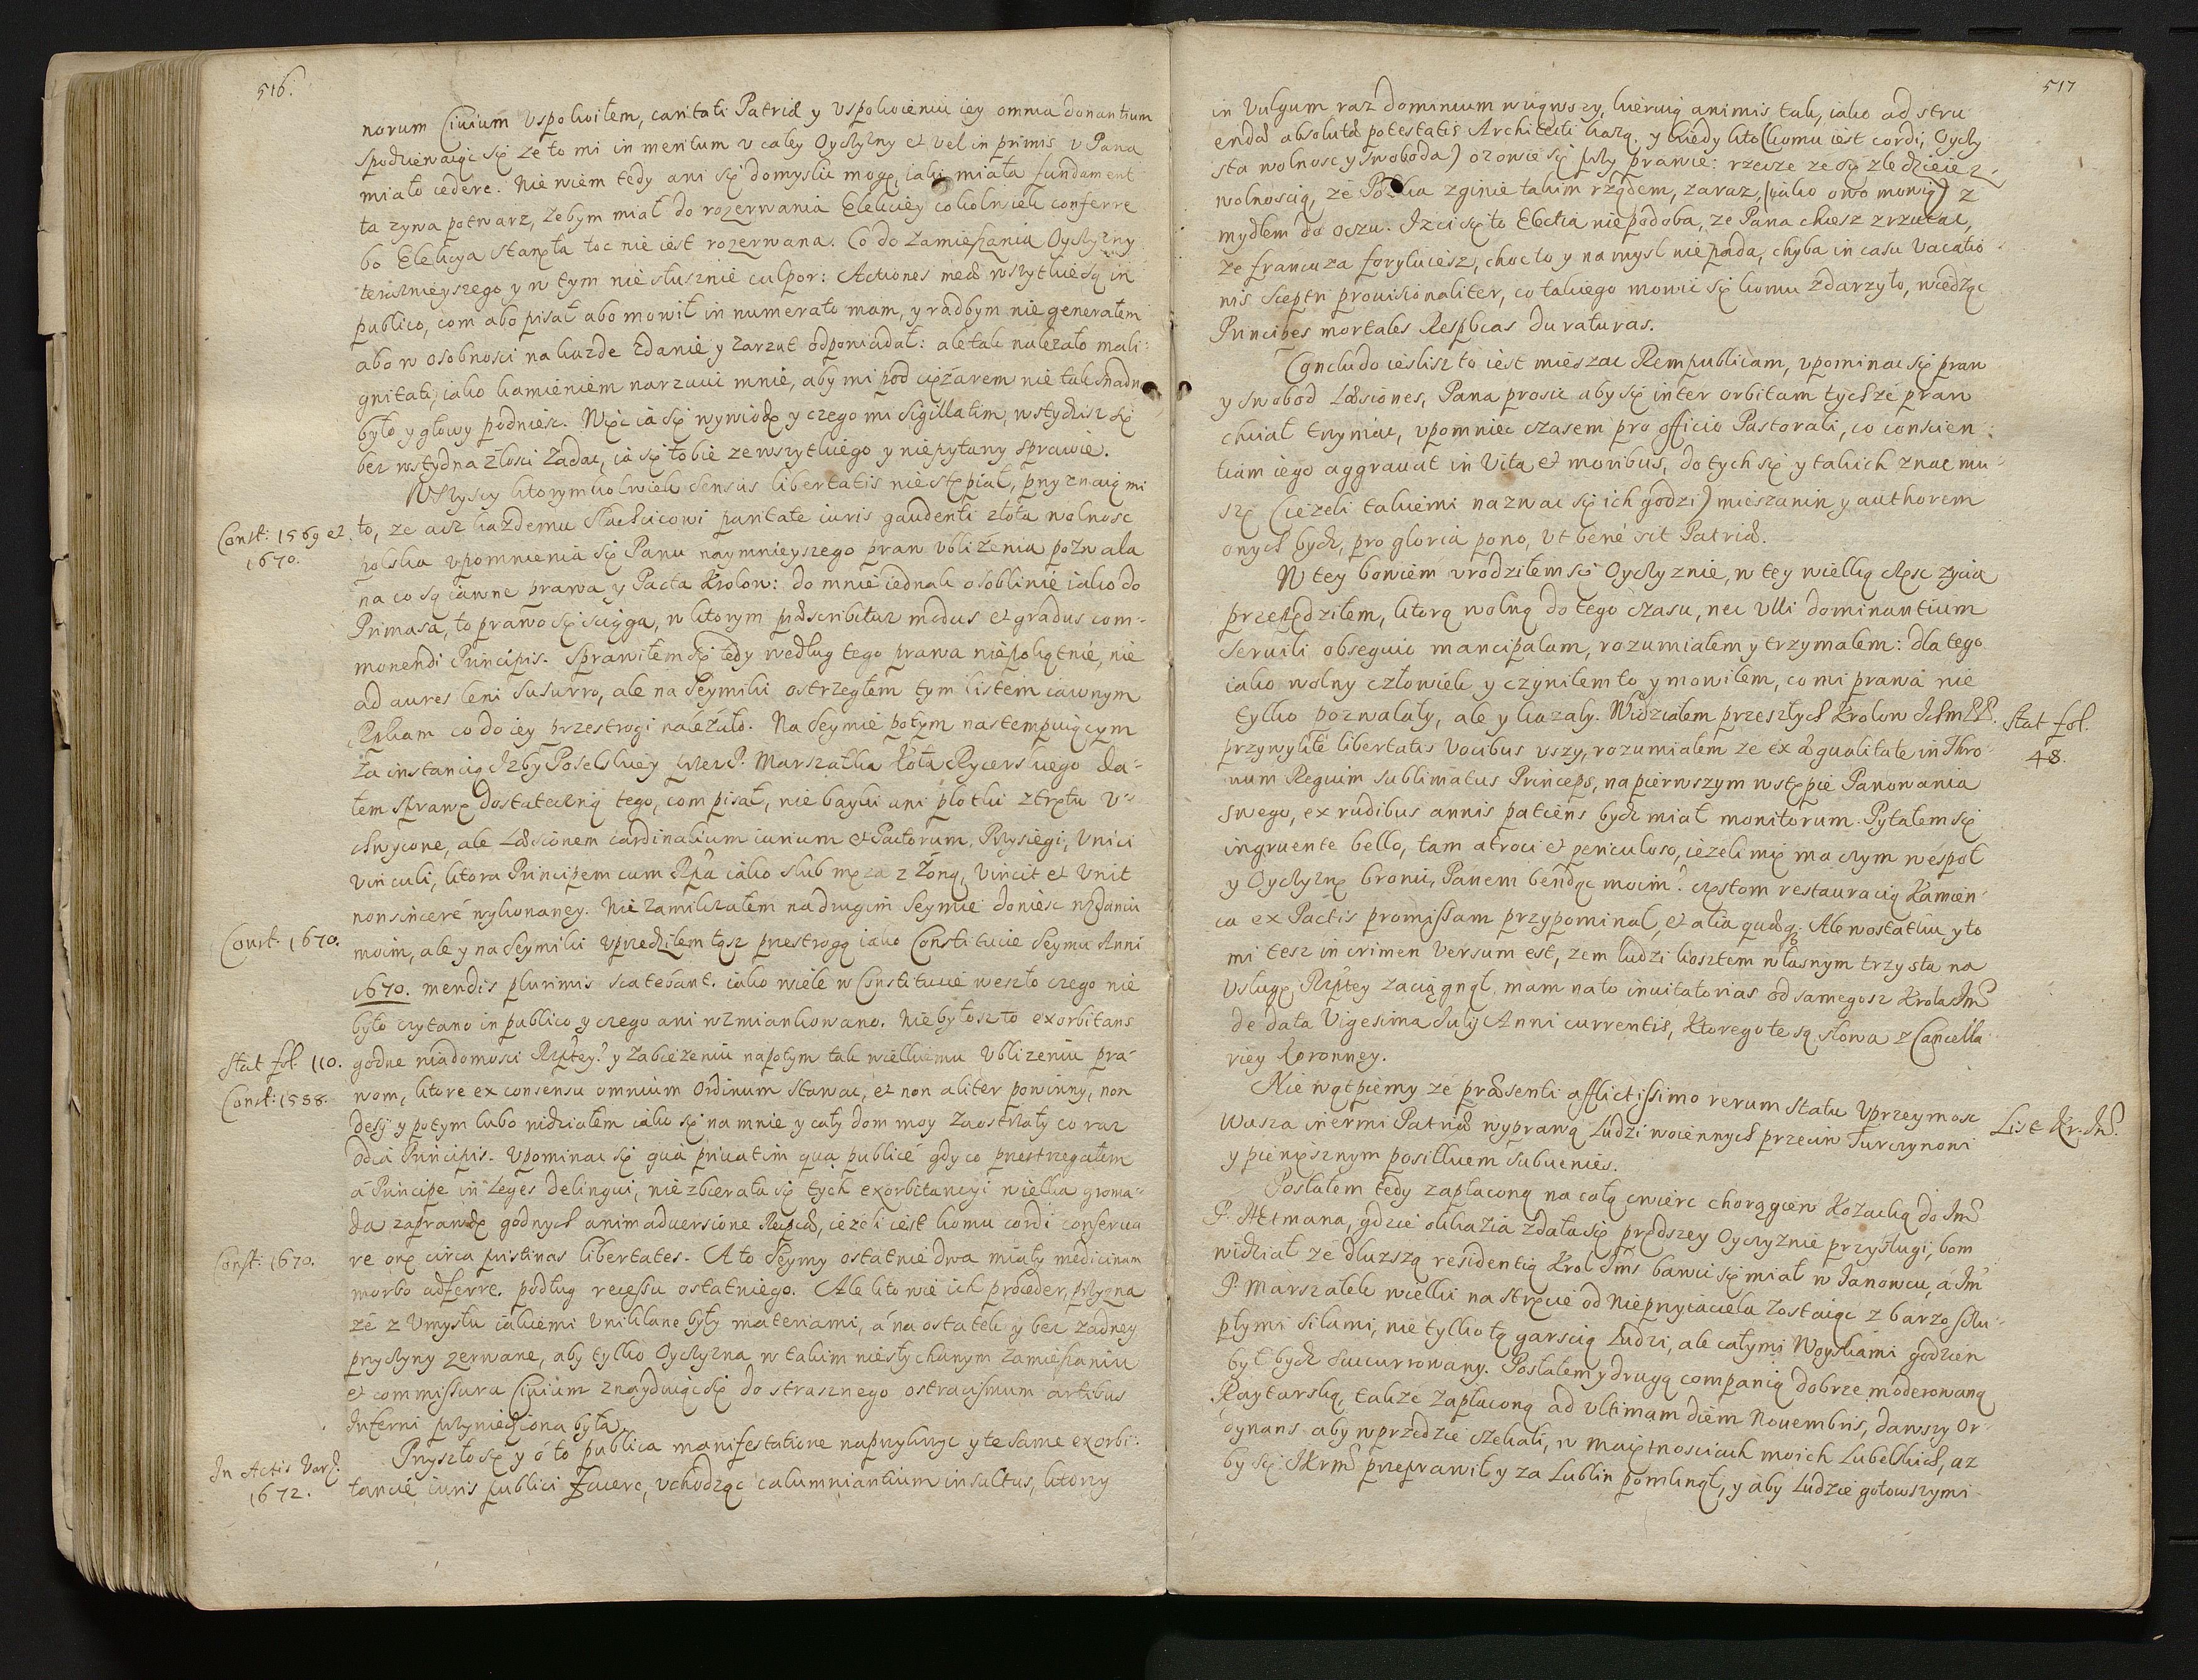 516.
norum Civium uspokoiłem, caritati Patriæ y uspokoieniu iey omnia donantium
spodziewaiąc się że to mi in meritum u całey Oyczyzny et vel in primis u Pana
miało cedere. Nie wiem tedy ani się domyslic mogę, iaki miała fundament
ta zywa potwarz, żebym miał do rozerwania Elekciey cokolwiek conferre
bo Elekcya stanęła toc nie iest rozerwana. Co do zamieszania Oyczyzny
teraznieyszego y w tym nie słusznie culpor: Actiones meæ wszytkie są in
publico, com abo pisał abo mowił in numerato mam, y radbym nie generałem
abo w osobnosci na kazde zdanie y zarzut odpowiadał: ale tak nalezało mali-
gnitati, iako kamieniem narzucic mnie, aby mi pod ciężarem nie tak snadno
było y głowy podniesc. Więc ia się wywiodę y czego mi sigillatim, wstydzisz się
bez wstydna złosci zadac, ia się tobie ze wszytkiego y niepytany sprawię.
Wszyscy ktorymkolwiek sensus libertatis nie stępiał, przyznaią mi
Const: 1569 et
1670.
to, ze acz kazdemu Szlachcicowi paritate iuris gaudenti złota wolnosc
polska upomnienia się Panu naymnieyszego praw ubliżenia pozwala
na co są iawne prawa y Pacta Krolow: do mnie iednak osobliwie iako do
Primasa, to prawo się sciąga, w ktorym præscribitur modus et gradus com-
monendi Principis. Sprawiłem się tedy według tego prawa niepokątnie, nie
ad aures leni susurro, ale na Seymiki ostrzegłem tym listem iawnym
Rzplicam co do iey przestrogi nalezało. Na Seymie potym nastempuiącym
za instancią Izby Poselskiey przez P. Marszałka Koła Rycerskiego da-
łem sprawę dostateczną tego, com pisał, nie bayki ani plotki z trętu u-
chwycone, ale læsionem cardinalium iurium et Pactorum, Przysięgi, unici
vinculi, ktora Principem cum Rpca iako slub męza z żoną, vincit et unit
non sincerè wykonaney. Nie zamilczałem na drugim Seymie doniesc w zdaniu
Const. 1670.
moim, ale y na Seymiki uprzedziłem tąsz przestrogą iako Constitucie Seymu Anni
1670. mendis plurimis scatebant. iako wiele w Constitucie weszło czego nie
było czytano in publico y czego ani wzmiankowano. Nie byłosz to exorbitans
Stat fol. 110.
godne wiadomosci Rzptey? y zabiezeniu napotym tak wielkiemu ublizeniu pra-
Const: 1588.
wom, ktore ex consensu omnium Ordinum stawac, et non aliter powinny, non
desij y potym lubo widziałem iako się na mnie y cały dom moy zaostrzały co raz
odia Principis. Upominac się quà privatim quà publicè gdy co przestrzegałem
à Principe in Leges delinqui, nie zbierała się tych exorbitancyi wielka groma-
da zaprawdę godnych animadversione Reipcæ, iezeli iest komu cordi conserva-
Const: 1670.
re onę circa pristinas libertates. A to Seymy ostatnie dwa miały medicinam
morbo adferre, podług recessu ostatniego. Ale kto wie ich proceder, przyzna
że z umysłu iakiemi uwikłane były materiami, á na ostatek y bez zadney
przyczyny zerwane, aby tylko Oyczyzna w takim niesłychanym zamieszaniu
et commissura Civium znayduiąc się do strasznego ostracismum artibus
Inferni przywiedziona była.
In Actis Vars.
1672.
Przyszło się y o to publica manifestatione naprzykrzyc y te same exorbi-
tancie iuris publici zwierc, uchodząc calumniantium insultus, ktorzy
517
in Vulgum raz dominium wziąwszy, kieruią animis tak, iako ad stru-
endæ absolutæ potestatis Architecti każą. y kiedy kto (komu iest cordi, Oyczy-
sta wolnosc y swoboda) ozowie się przy prawie: rzecze ze się zle dzieie z
wolnoscią, że Polska zginie takim rządem, zaraz, (iako owo mowią) z
mydłem do oczu. Iz ci się to Electia niepodoba, ze Pana chcesz zrzucac,
ze francuza forytuiesz, choc to y na mysl nie pada, chyba in casu Vacatio-
nis Sceptri provisionaliter, co takiego mowic się komu zdarzyło, wiedząc
Principes mortales Respbcas duraturas.
Concludo ieslisz to iest mieszac Rempublicam, upominac się praw
y swobod læsiones, Pana prosic aby się inter orbitam tychże praw
chciał trzymac, upomniec czasem pro officio Pastorali, co conscien-
tiam iego aggravat in Vita et moribus, do tych się y takich znac mu-
szę (iezeli takiemi nazwac się ich godzi) mieszanin y authorem
onych bydz, pro gloria pono, ut benè sit Patriæ.
W tey bowiem urodziłem się Oyczyznie, w tey wielką częsc zycia
przepędziłem, ktorą wolną do tego czasu, nec ulli dominantium
servili obsequio mancipatam, rozumiałem y trzymałem: dla tego
iako wolny człowiek y czyniłem to y mowiłem, co mi prawa nie
tylko pozwalały, ale y kazaly. Widziałem przeszłych Krolow Ichmsz.
Stat fol.
48.
przywykłe libertatis vocibus uszy, rozumiałem ze ex æqualitate in Thro-
num Regium sublimatus Princeps, na pierwszym wstępie Panowania
swego, ex rudibus annis patiens bydz miał monitorum. Pytałem się
ingruente bello, tam atroci et periculoso, iezeli mię ma czym wespoł
y Oyczyznę bronic, Panem bendąc moim? częstom restauracią Kamien-
ca ex Pactis promissam przypominał, et alia quæq;. Ale w ostatku y to
mi tesz in crimen versum est, zem ludzi kosztem własnym trzy sta na
usługę Rzptey zaciągnął, mam na to invitatorias od samegosz Krola Jmci
de data Vigesima Julij Anni currentis, Ktorego te są słowa z Cancella-
riey Koronney.
Nie wątpiemy ze præsenti afflictissimo rerum statu Uprzeymosc
Wasza inermi Patriæ wyprawą Ludzi woiennych przeciw Turczynowi
List Kr. Jmci.
y pieniężnym posiłkiem subvenies.
Posłałem tedy zapłaconą na całą cwierc chorągiew Kozacką do Jmci
P. Hetmana, gdzie okkazia zdała się prędszey Oyczyznie przysługi, bom
widział ze dłuzszą residentią Krol Jms bawic się miał w Janowcu, á Jm
P. Marszałek wielki na stręcie od Nieprzyiaciela zostaiąc z barzo szczu-
płymi siłami, nie tylko tą garscią Ludzi, ale całymi Woyskami godzien
był bydz succurrowany. Posłałem y drugą companią dobrze moderowaną
Raytarską, także zapłaconą ad ultimam diem Novembris, dawszy or-
dynans aby w przedzie czekali, w maiętnosciach moich Lubelskich, az
by się JKrmsc przeprawił y za Lublin pomknął, y aby Ludzie gotowszymi